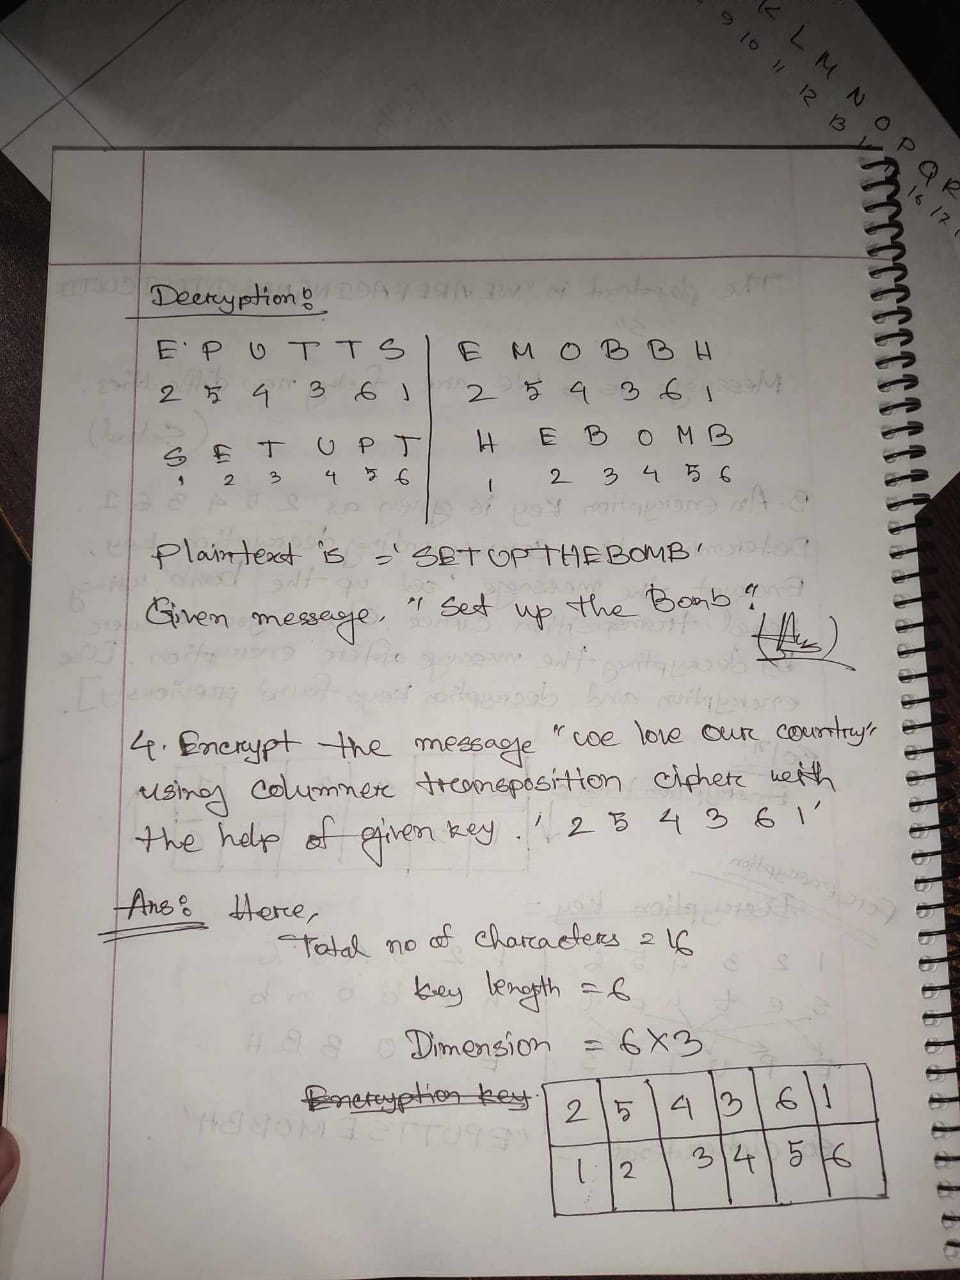 K L M N O P Q R
9 10 11 12 13 16 17
Decryption:
E P U T T S | E M O B B H
2 5 4 3 6 1 | 2 5 4 3 6 1
S E T U P T | H E B O M B
1 2 3 4 5 6 | 1 2 3 4 5 6
Plaintext is = 'SETUPTHEBOMB'
Given message, "Set up the Bomb".
(Ans)
4. Encrypt the message "we love our country"
using columner transposition cipher with
the help of given key. '2 5 4 3 6 1'
Ans: Here,
Total no of characters = 16
key length = 6
Dimension = 6×3
Encryption key
2 5 4 3 6 1
1 2 3 4 5 6